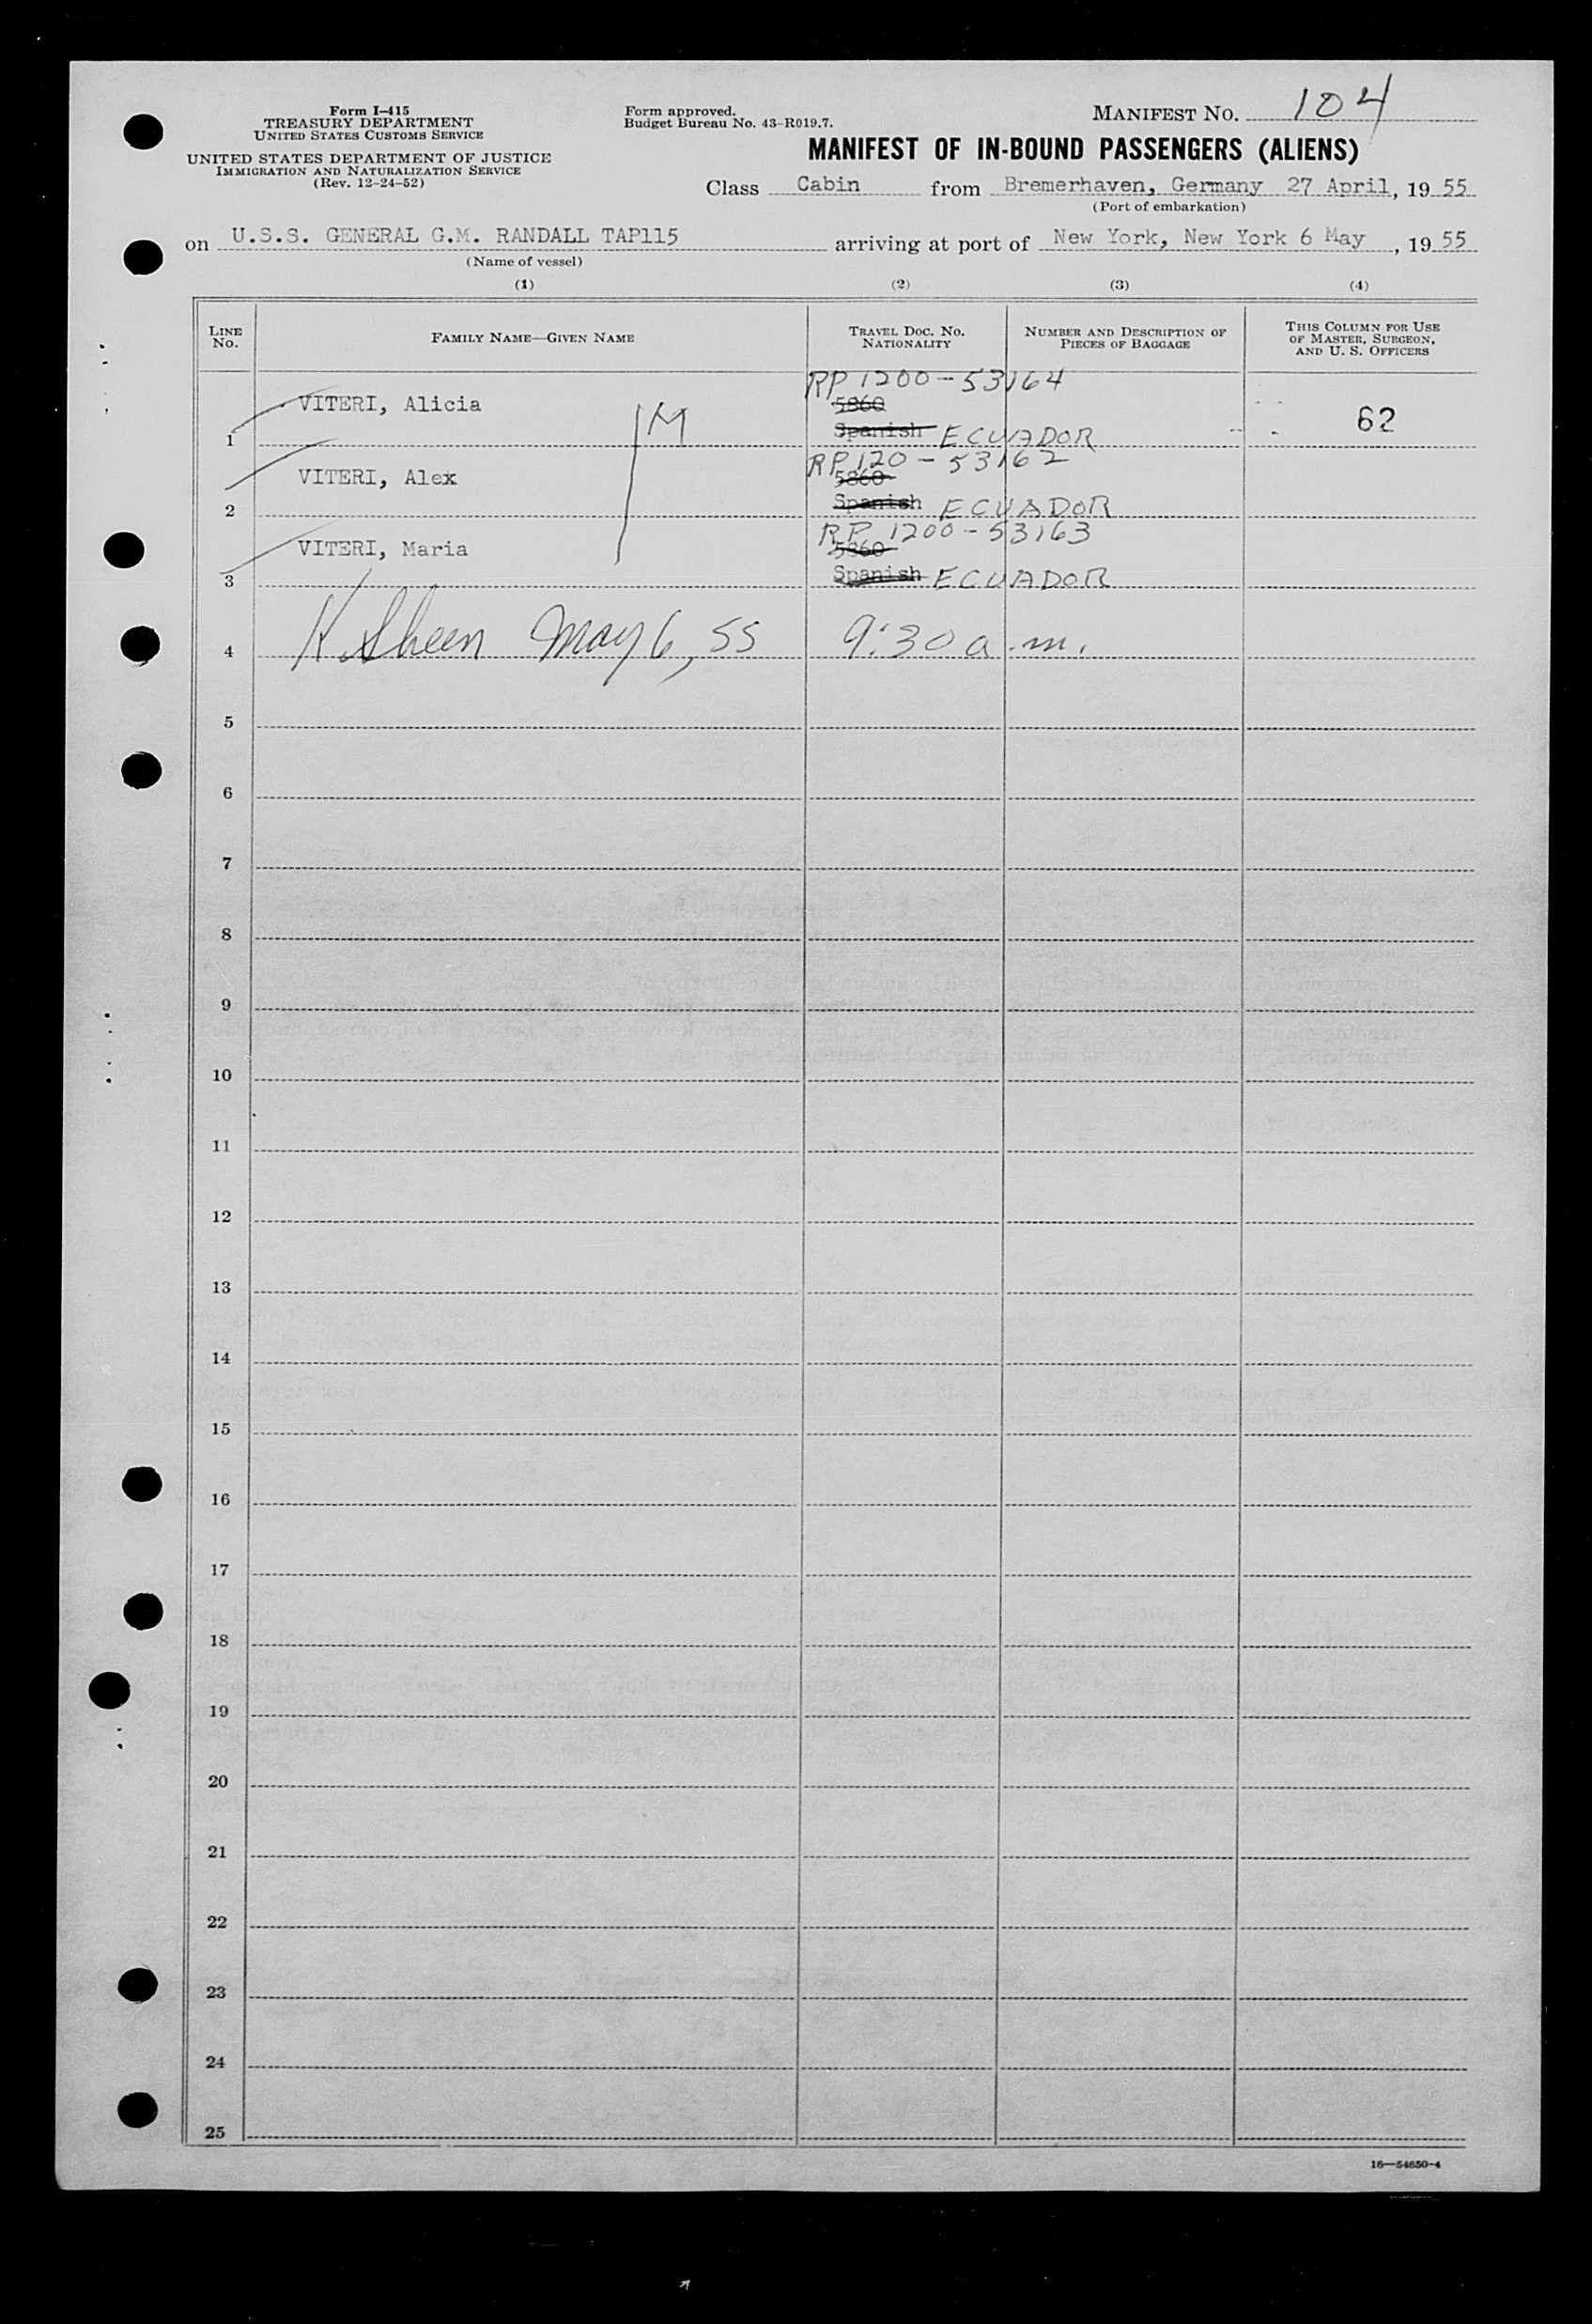 Form I-415
TREASURY DEPARTMENT
UNITED STATES CUSTOMS SERVICE
UNITED STATES DEPARTMENT OF JUSTICE
IMMIGRATION AND NATURALIZATION SERVICE
(Rev. 12-24-52)
Form approved.
Budget Bureau No. 43-R019.7.
MANIFEST NO. 104
MANIFEST OF IN-BOUND PASSENGERS (ALIENS)
Class Cabin from Bremerhaven, Germany 27 April, 19 55
(Port of embarkation)
on U.S.S. GENERAL G.M. RANDALL TAP115 arriving at port of New York, New York 6 May, 19 55
(Name of vessel)
(1) (2) (3) (4)
LINE NO. FAMILY NAME—GIVEN NAME TRAVEL DOC. NO. NATIONALITY NUMBER AND DESCRIPTION OF PIECES OF BAGGAGE THIS COLUMN FOR USE OF MASTER, SURGEON, AND U. S. OFFICERS
RP 1200-53164
VITERI, Alicia M 5860 62
1 Spanish ECUADOR
RP 120-53162
VITERI, Alex 5860
2 Spanish ECUADOR
RP 1200-53163
VITERI, Maria 5860
3 Spanish ECUADOR
4 K. Sheen May 6, 55 9:30 a.m.
5
6
7
8
9
10
11
12
13
14
15
16
17
18
19
20
21
22
23
24
25
16—54650-4